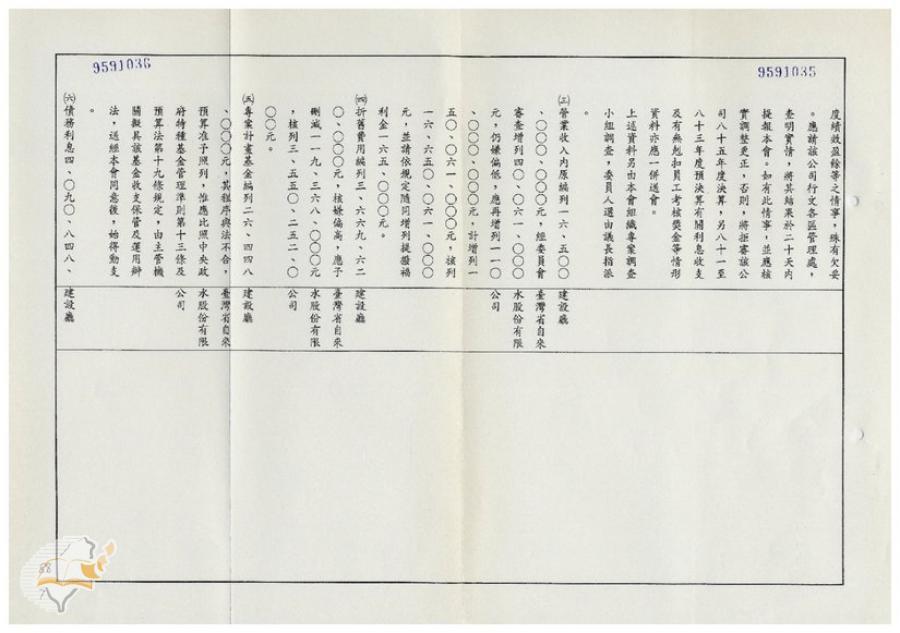 9591035
度績效盈餘等之情事，殊有欠妥
。應請該公司行文各區管理處，
查明實情，將其結果於二十天內
提報本會。如有此情事，並應核
實調整更正，否則，將拒審該公
司八十五年度決算，另八十一至
八十三年度預決算有關利息收支
及有無剋扣員工考核獎金等情形
資料亦應一併送會。
上述資料另由本會組織專案調查
小組調查，委員人選由議長指派
。
㈢營業收入內原編列一六、五〇〇
、〇〇〇、〇〇〇元，經委員會
審查增列四〇、〇六一、〇〇〇
元，仍嫌偏低，應再增列一一〇
、〇〇〇、〇〇〇元，計增列一
五〇、〇六一、〇〇〇元，核列
一六、六五〇、〇六一、〇〇〇
元，並請依規定隨同增列提撥福
利金一六五、〇〇〇元。
建設廳
臺灣省自來
水股份有限
公司
㈣折舊費用編列三、六六九、六二
〇、〇〇〇元，核嫌偏高，應予
刪減一一九、三六八、〇〇〇元
，核列三、五五〇、二五二、〇
〇〇元。
建設廳
臺灣省自來
水股份有限
公司
㈤專案計畫基金編列二六、四四八
、〇〇〇元，其程序與法不合，
預算准予照列，惟應比照中央政
府特種基金管理準則第十三條及
預算法第十九條規定，由主管機
關擬具該基金收支保管及運用辦
法，送經本會同意後，始得動支
。
建設廳
臺灣省自來
水股份有限
公司
㈥債務利息四、〇九〇、八四八、
建設廳
9591036
88